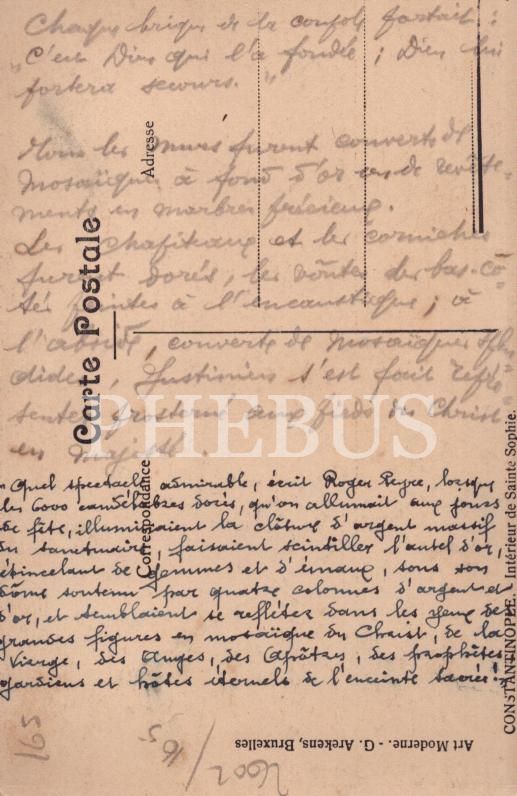 Chaque brique de la coupole portait :
"C'est Dieu qui l'a fondée ; Dieu lui
portera secours."
Tous les murs furent couverts de
Mosaïques à fond d'or ou de revête-
ments en marbres précieux.
Les chapiteaux et les corniches
furent dorés, les voûtes des bas-cô-
tés peintes à l'encaustique ; à
l'abside, couverte de Mosaïques splen
dides, Justinien s'est fait repré-
senter prosterné aux pieds du Christ
en Majesté.
"Quel spectacle admirable, écrit Roger Peyre, lorsque
les 6000 candélabres dorés, qu'on allumait aux jours
de fête, illuminaient la clôture d'argent massif
du sanctuaire, faisaient scintiller l'autel d'or,
étincelant de gemmes et d'émaux, sous son
dôme soutenu par quatre colonnes d'argent et
d'or, et semblaient se refléter dans les yeux de
grandes figures en mosaïque du Christ, de la
Vierge, des Anges, des Apôtres, des prophètes
gardiens et hôtes éternels de l'enceinte sacrée"
Carte Postale
Adresse
Correspondance
CONSTANTINOPLE. - Intérieur de Sainte Sophie.
Art Moderne. - G. Arekens, Bruxelles
PHEBUS
165